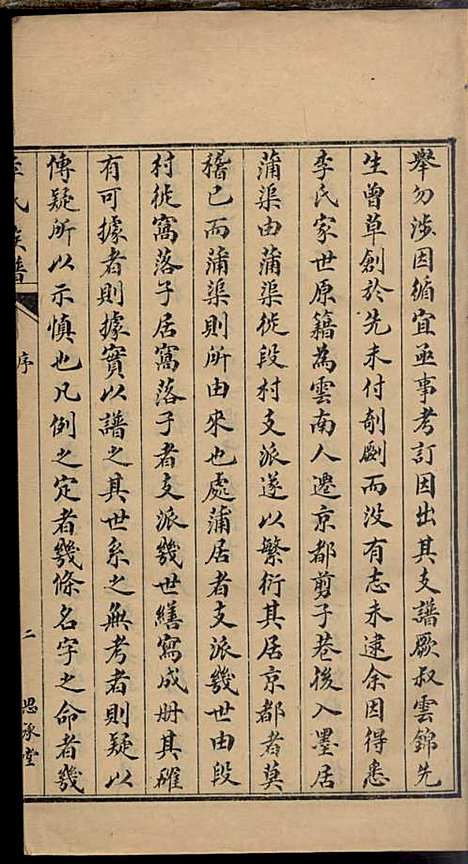 舉勿涉因循宜亟事考訂因出其支譜厥叔雲錦先
生曾草創於先未付剞劂而没有志未逮余因得悉
李氏家世原籍為雲南人遷京都剪子巷後入墨居
蒲渠由蒲渠徙段村支派遂以繁衍其居京都者莫
稽已而蒲渠則所由來也處蒲居者支派幾世由段
村徙窩落子居窩落子者支派幾世繕寫成册其確
有可據者則據實以譜之其世系之無考者則疑以
傳疑所以示慎也凡例之定者幾條名字之命者幾
李氏族譜
序
二
思承堂